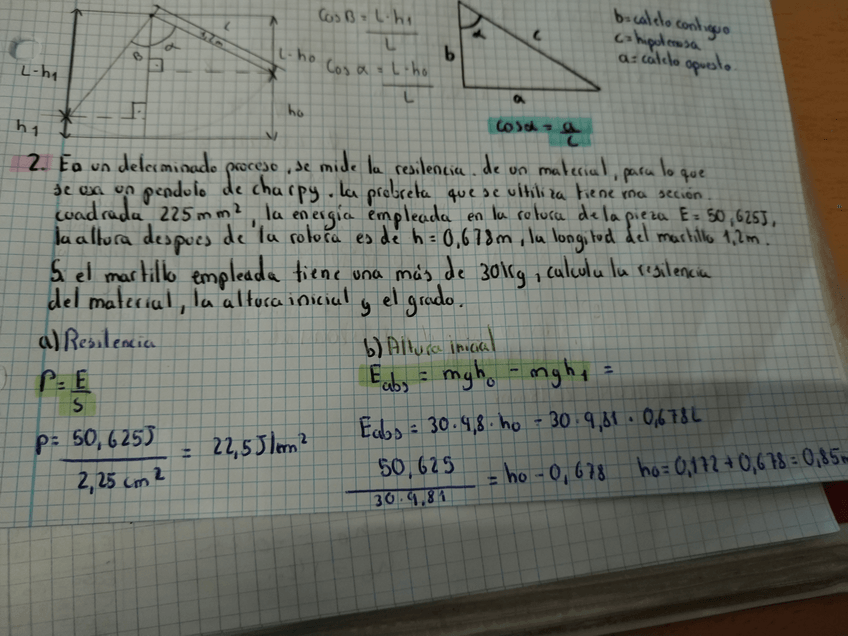 L-h₁
h₁
B
α
c
L-h₀
h₀
Cos B = L-h₁ / L
Cos α = L-h₀ / L
b
α
c
a
b=cateto contiguo
c=hipotenosa
a=cateto opuesto.
cosα = a / c
2. En un determinado proceso, se mide la resilencia de un material, para lo que
se usa un pendolo de charpy. La probreta que se ultiliza tiene una sección
cuadrada 225mm², la energía empleada en la rotura de la pieza E=50,625J,
la altura despues de la rotura es de h=0,678m, la longitud del martillo 1,2m.
Si el martillo empleada tiene una más de 30kg, calcula la resilencia
del material, la altura inicial y el grado.
a) Resilencia
ρ = E / S
ρ = 50,625J / 2,25 cm² = 22,5J/cm²
b) Altura inicial
E_abs = mgh₀ - mgh₁ =
E_abs = 30·9,8·h₀ - 30·9,81·0,678
50,625 / 30·9,81 = h₀ - 0,678 h₀=0,172+0,678=0,85m